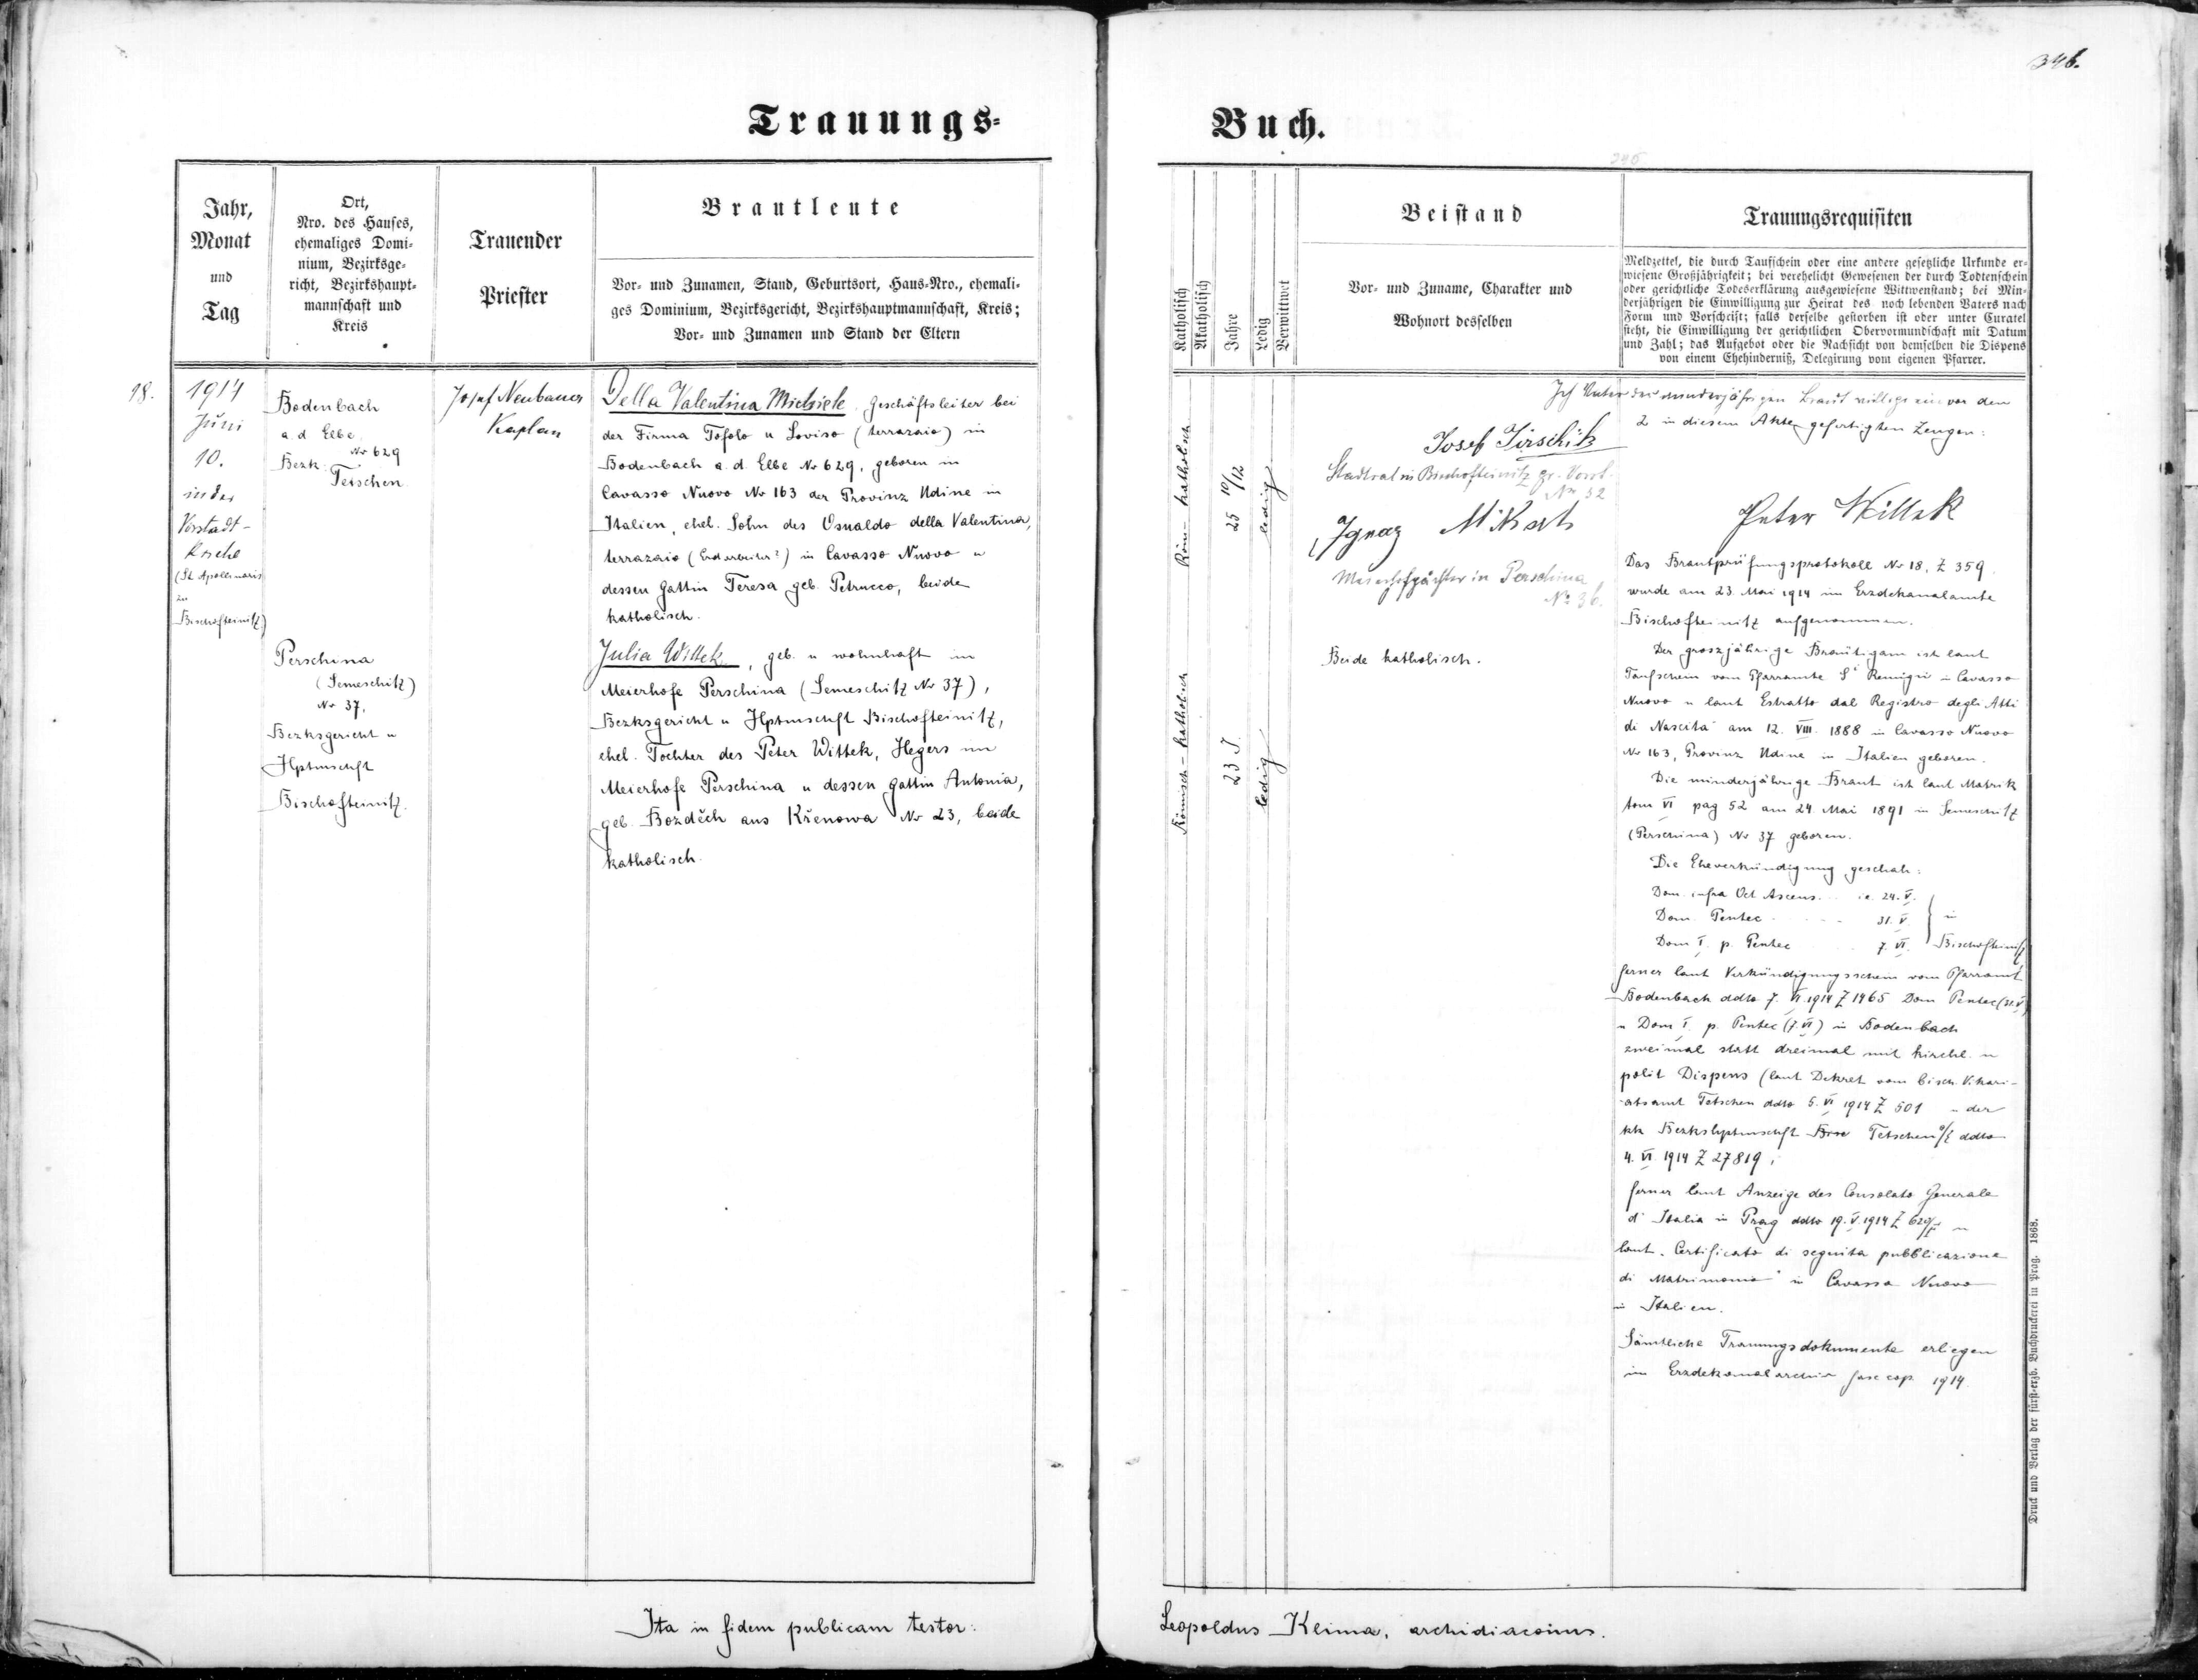 346.
Trauungs=
Buch.
246
Jahr,
Monat
und
Tag
Ort,
Nro. des Hauses,
ehemaliges Domi=
nium, Bezirksge=
richt, Bezirkshaupt=
mannschaft und
Kreis
Trauender
Priester
Brautleute
Vor= und Zunamen, Stand, Geburtsort, Haus=Nro., ehemali=
ges Dominium, Bezirksgericht, Bezirkshauptmannschaft, Kreis;
Vor= und Zunamen und Stand der Eltern
18.
1914
Juni
10.
in der
Vorstadt-
kirche
(St. Apollinaris
in
Bischofteinitz)
Bodenbach
a. d. Elbe
Nr 629
Bezk:
Tetschen.
Perschina
(Semeschitz)
Nr 37,
Bezksgericht u
Hptmschft
Bischofteinitz.
Josef Neubauer
Kaplan
Della Valentina Michiele, Geschäftsleiter bei
der Firma Tofolo u Loviso (terrazaio) in
Bodenbach a. d. Elbe Nr 629, geboren in
Cavasso Nuovo Nr 163 der Provinz Udine in
Italien, ehel. Sohn des Osualdo della Valentina,
terrazaio (Erdarbeiter?) in Cavasso Nuovo u
dessen Gattin Teresa geb. Petrucco, beide
katholisch.
Julia Wittek, geb. u wohnhaft im
Meierhofe Perschina (Semeschitz Nr 37),
Bezksgericht u Hptmschft Bischofteinitz,
ehel. Tochter des Peter Wittek, Hegers im
Meierhofe Perschina u dessen Gattin Antonia,
geb. Bozděch aus Křenowa Nr 23, beide
katholisch.
Ita in fidem publicam testor:
Katholisch
Akatholisch
Jahre
Ledig
Verwittwet
Beistand
Vor= und Zuname, Charakter und
Wohnort desselben
Trauungsrequisiten
Meldzettel, die durch Taufschein oder eine andere gesetzliche Urkunde er=
wiesene Großjährigkeit; bei verehelicht Gewesenen der durch Todtenschein
oder gerichtliche Todeserklärung ausgewiesene Wittwenstand; bei Min=
derjährigen die Einwilligung zur Heirat des noch lebenden Vaters nach
Form und Vorschrift; falls derselbe gestorben ist oder unter Curatel
steht, die Einwilligung der gerichtlichen Obervormundschaft mit Datum
und Zahl; das Aufgebot oder die Nachsicht von demselben die Dispens
von einem Ehehinderniß, Delegirung vom eigenen Pfarrer.
Röm- katholisch
25 10/12
ledig
Römisch-katholisch
23 J.
ledig
Josef Jirschik
Stadtrat in Bischofteinitz gr. Vorst.
Nr. 32
Ignaz
Meierhofpächter in Perschina
Nr. 36.
Beide katholisch.
Ich Vater der minderjährigen Braut willige ein vor den
2 in diesem Akte gefertigten Zeugen:
Peter Wittek
Das Brautprüfungsprotokoll Nr 18, Z 359
wurde am 23. Mai 1914 im Erzdekanalamte
Bischofteinitz aufgenommen.
Der grossjährige Bräutigam ist laut
Taufschein vom Pfarramte Si Remigii in Cavasso
Nuovo u laut Estratto dal Registro degli Atti
di Nascita am 12. VIII. 1888 in Cavasso Nuovo
Nr 163, Provinz Udine in Italien geboren.
Die minderjährige Braut ist laut Matrik
tom VI pag 52 am 24. Mai 1891 in Semeschitz
(Perschina) Nr 37 geboren.
Die Eheverkündigung geschah:
Dom. infra Oct Ascens. .. i.e. 24. V.
Dom. Pentec . . . 31. V. in
Dom I. p. Pentec . . 7. VI. Bischofteinitz
ferner laut Verkündigungsschein vom Pfarramt
Bodenbach ddto 7. VI. 1914 Z 1465 Dom Pentec (31. V.)
u Dom I. p. Pentec (7. VI) in Bodenbach
zweimal statt dreimal mit kirchl. u
polit Dispens (laut Dekret vom bisch. Vikari-
atsamt Tetschen ddto 5. VI 1914 Z 501 u der
kk Bezkshptmschft Tetschen a/E ddto
4. VI. 1914 Z 27819;
ferner laut Anzeige des Consolato Generale
d' Italia in Prag ddto 19. V. 1914 Z u
laut Certificato di seguita pubblicazione
di Matrimonio" in Cavasso Nuovo
in Italien.
Sämtliche Trauungsdokumente erliegen
im Erzdekanalarchiv fasc cop. 1914.
Leopoldus Klima, archidiaconus.
Druck und Verlag der fürst=erzb. Buchdruckerei in Prag. 1868.